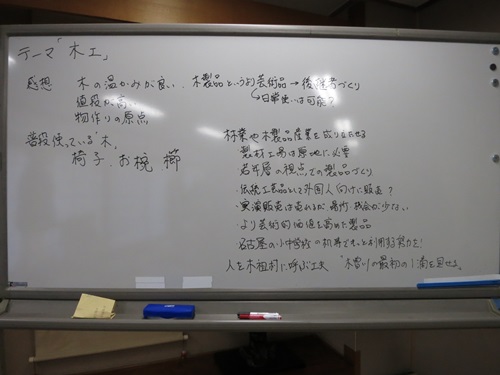 テーマ「木工」
感想 木の温かみが良い、木製品というより芸術品→後継者づくり
値段が高い ↳日常使いは可能?
物作りの原点
普段使っている"木"
椅子、お椀 櫛
林業や木製品産業を成り立たせる
製材工場は原地に必要
若年層の視点での製品づくり
・伝統工芸品として外国人向けに販売?
・実演販売は売れるが場所・機会が少ない
・より芸術的価値を高めた製品
・名古屋の小中学校の机等でもっと利用する努力を!
人を木祖村に呼ぶ工夫 "木曽川の最初の1滴を見せる。